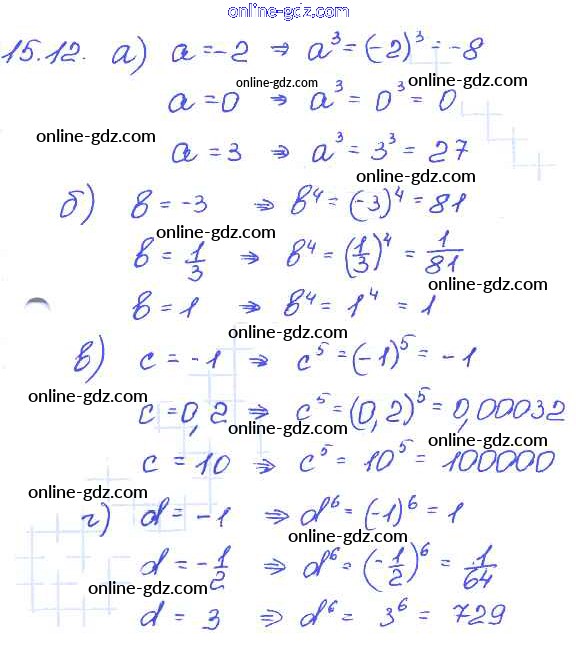 online-gdz.com
15.12. а) a = -2 ⇒ a³ = (-2)³ = -8
online-gdz.com online-gdz.com
a = 0 ⇒ a³ = 0³ = 0
online-gdz.com online-gdz.com
a = 3 ⇒ a³ = 3³ = 27
online-gdz.com
б) b = -3 ⇒ b⁴ = (-3)⁴ = 81
online-gdz.com
b = 1/3 ⇒ b⁴ = (1/3)⁴ = 1/81
online-gdz.com
b = 1 ⇒ b⁴ = 1⁴ = 1
online-gdz.com
в) c = -1 ⇒ c⁵ = (-1)⁵ = -1
online-gdz.com
c = 0,2 ⇒ c⁵ = (0,2)⁵ = 0,00032
online-gdz.com online-gdz.com
c = 10 ⇒ c⁵ = 10⁵ = 100000
online-gdz.com
г) d = -1 ⇒ d⁶ = (-1)⁶ = 1
online-gdz.com
d = -1/2 ⇒ d⁶ = (-1/2)⁶ = 1/64
online-gdz.com
d = 3 ⇒ d⁶ = 3⁶ = 729